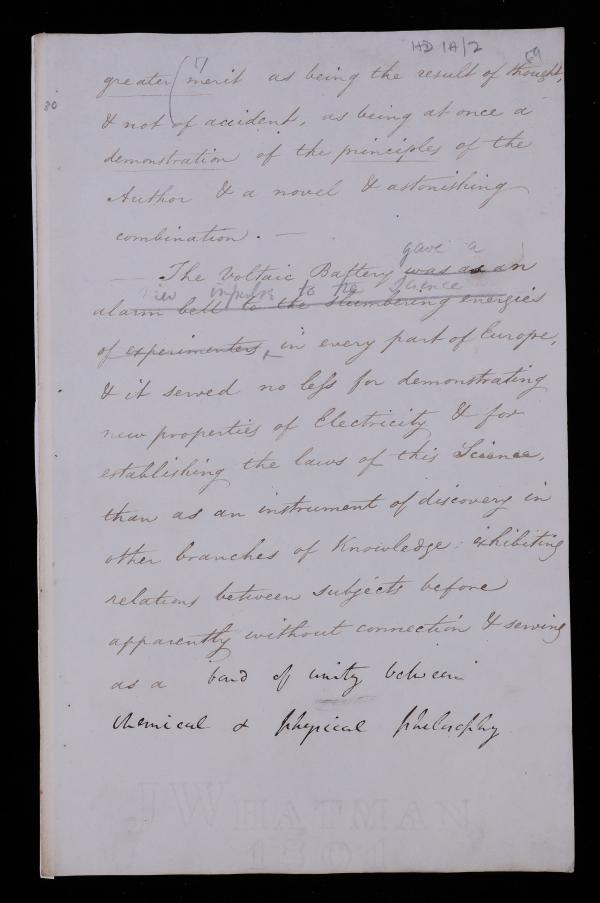 HD 1A/2
59
30
7
greater ( merit as being the result of thought,
& not of accident, as being at once a
demonstration of the principles of the
Author & a novel & astonishing
combination. —
gave a
— The Voltaic Battery was as an
new impulse to the science
alarm bell to the slumbering energies
of experimenters, in every part of Europe,
& it served no less for demonstrating
new properties of Electricity & for
establishing the laws of this Science,
than as an instrument of discovery in
other branches of Knowledge: exhibiting
relations between subjects before
apparently without connection & serving
as a band of unity between
chemical & physical philosophy
J WHATMAN
1801